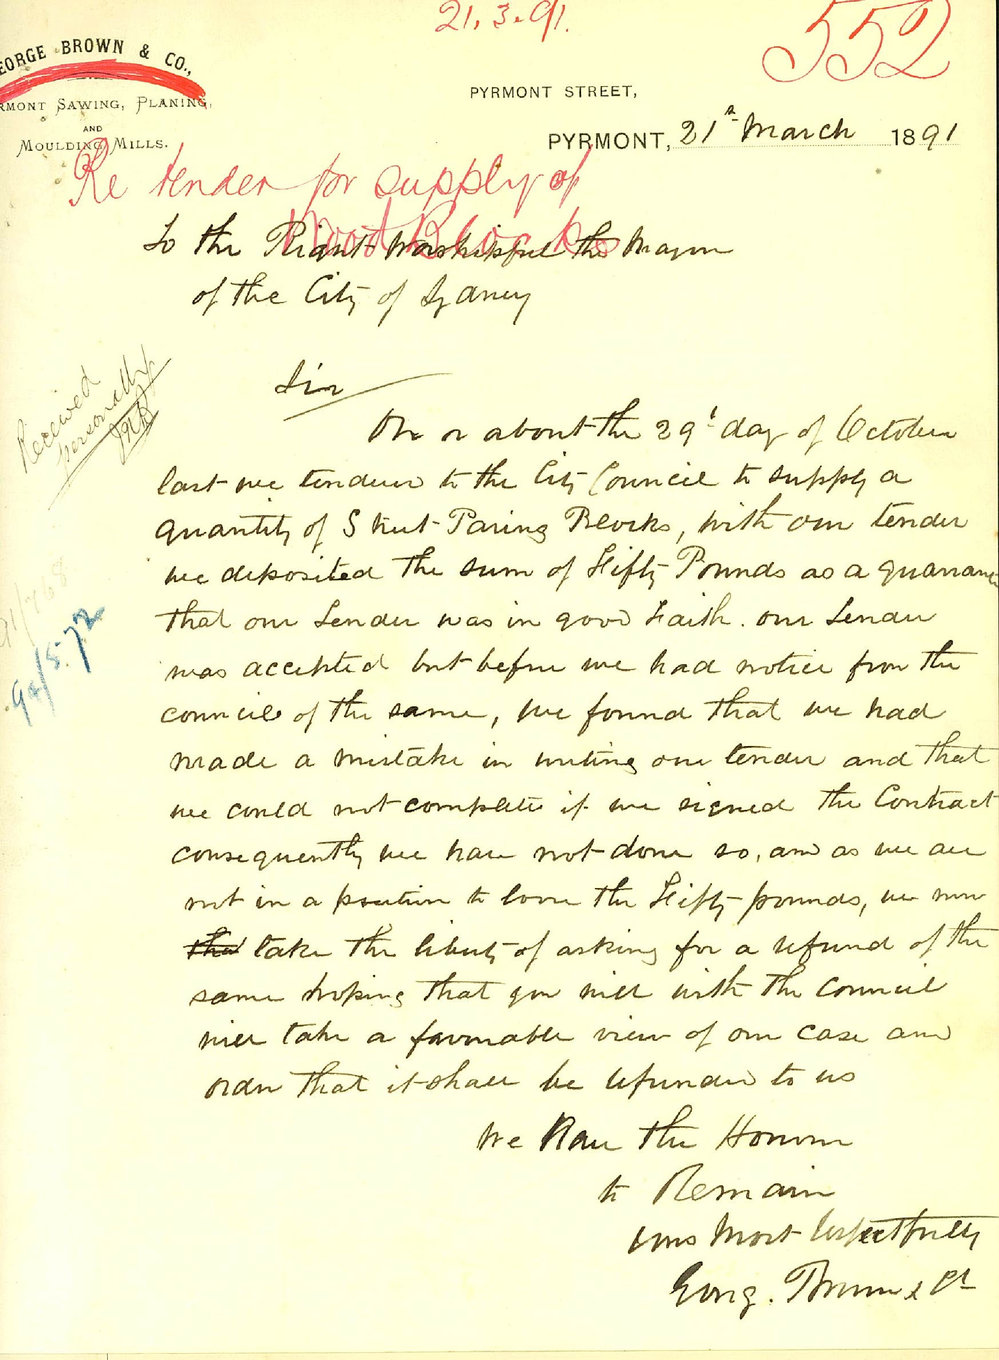 21.3.91.
552
GEORGE BROWN & CO.,
PYRMONT SAWING, PLANING,
AND
MOULDING MILLS.
PYRMONT STREET,
PYRMONT, 21st March 1891
Re tender for supply of
Wood Blocks
To the Right Worshipful the Mayor
of the City of Sydney
Received
personally
Sir
On or about the 29th day of October
last we tendered to the City Council to supply a
quantity of Street Paving Blocks, with our tender
we deposited the sum of Fifty Pounds as a guarantee
that our Tender was in good Faith. our Tender
was accepted but before we had notice from the
council of the same, we found that we had
made a mistake in writing our tender and that
we could not complete if we signed the Contract
consequently we have not done so, and as we are
not in a position to loose the Fifty pounds, we now
the take the liberty of asking for a refund of the
same hoping that you will with the Council
will take a favorable view of our case and
order that it shall be refunded to us
We Have the Honour
to Remain
Yours Most Respectfully
Georg. Brown & Co
91/768
92/572